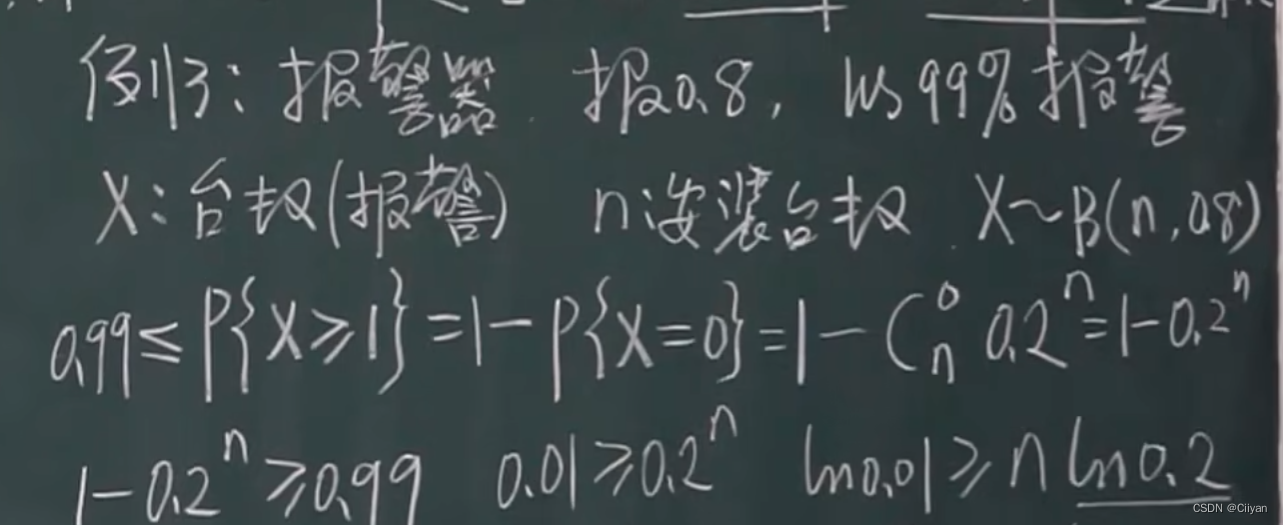 例3: 报警器 报0.8, 以99%报警
X: 台数(报警) n:安装台数 X~B(n,0.8)
0.99≤P{X≥1}=1-P{X=0}=1-Cₙ⁰ 0.2ⁿ=1-0.2ⁿ
1-0.2ⁿ≥0.99 0.01≥0.2ⁿ ln0.01≥n ln0.2
CSDN @Ciiyan